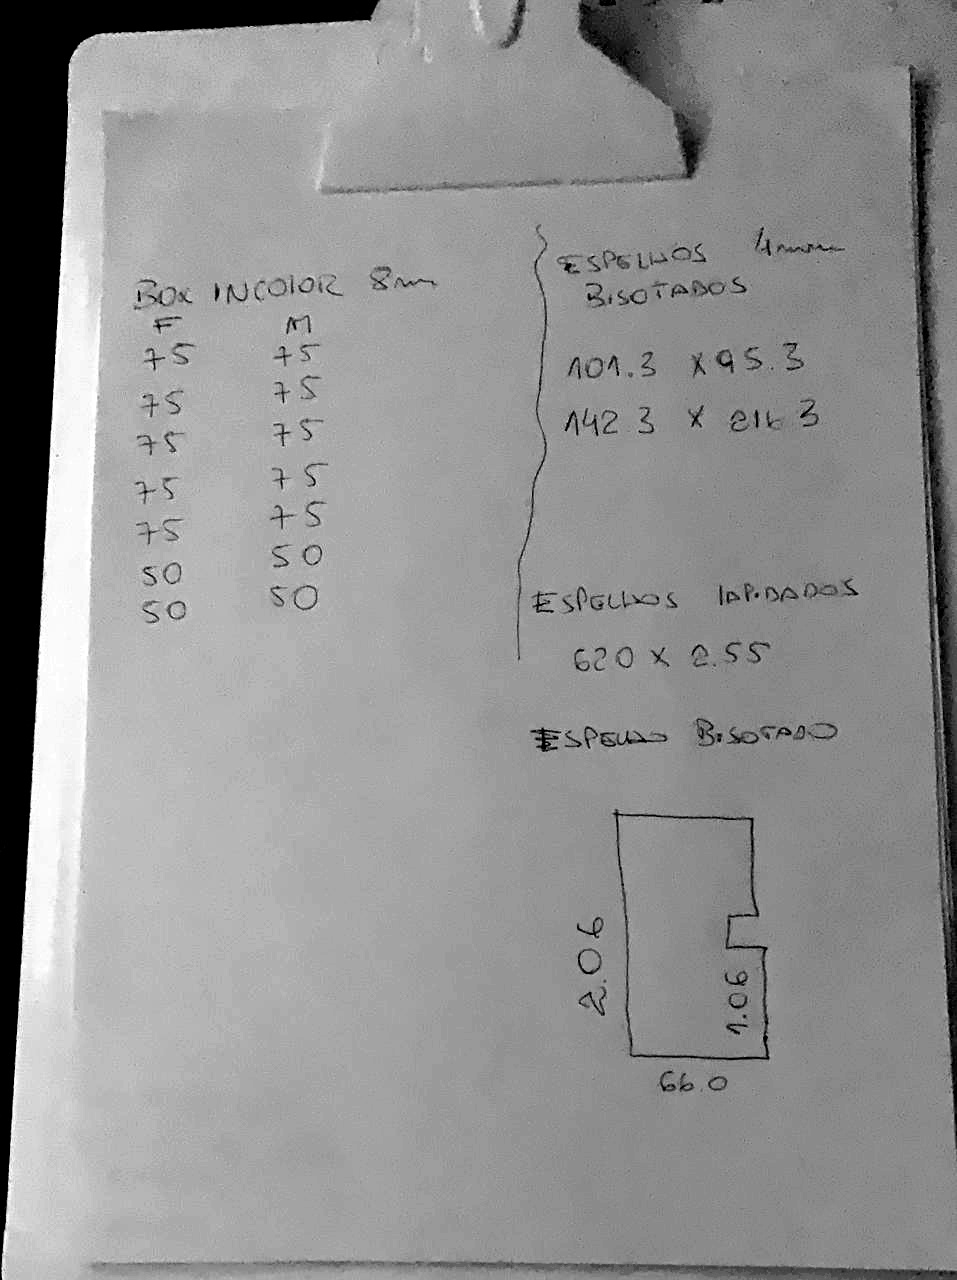 BOX INCOLOR 8mm
F M
75 75
75 75
75 75
75 75
75 75
50 50
50 50
ESPELHOS 4mm
BISOTADOS
101.3 x 95.3
142 3 x 216 3
ESPELHOS LAPIDADOS
620 x 2.55
ESPELHO BISOTADO
2.06
1.06
66.0